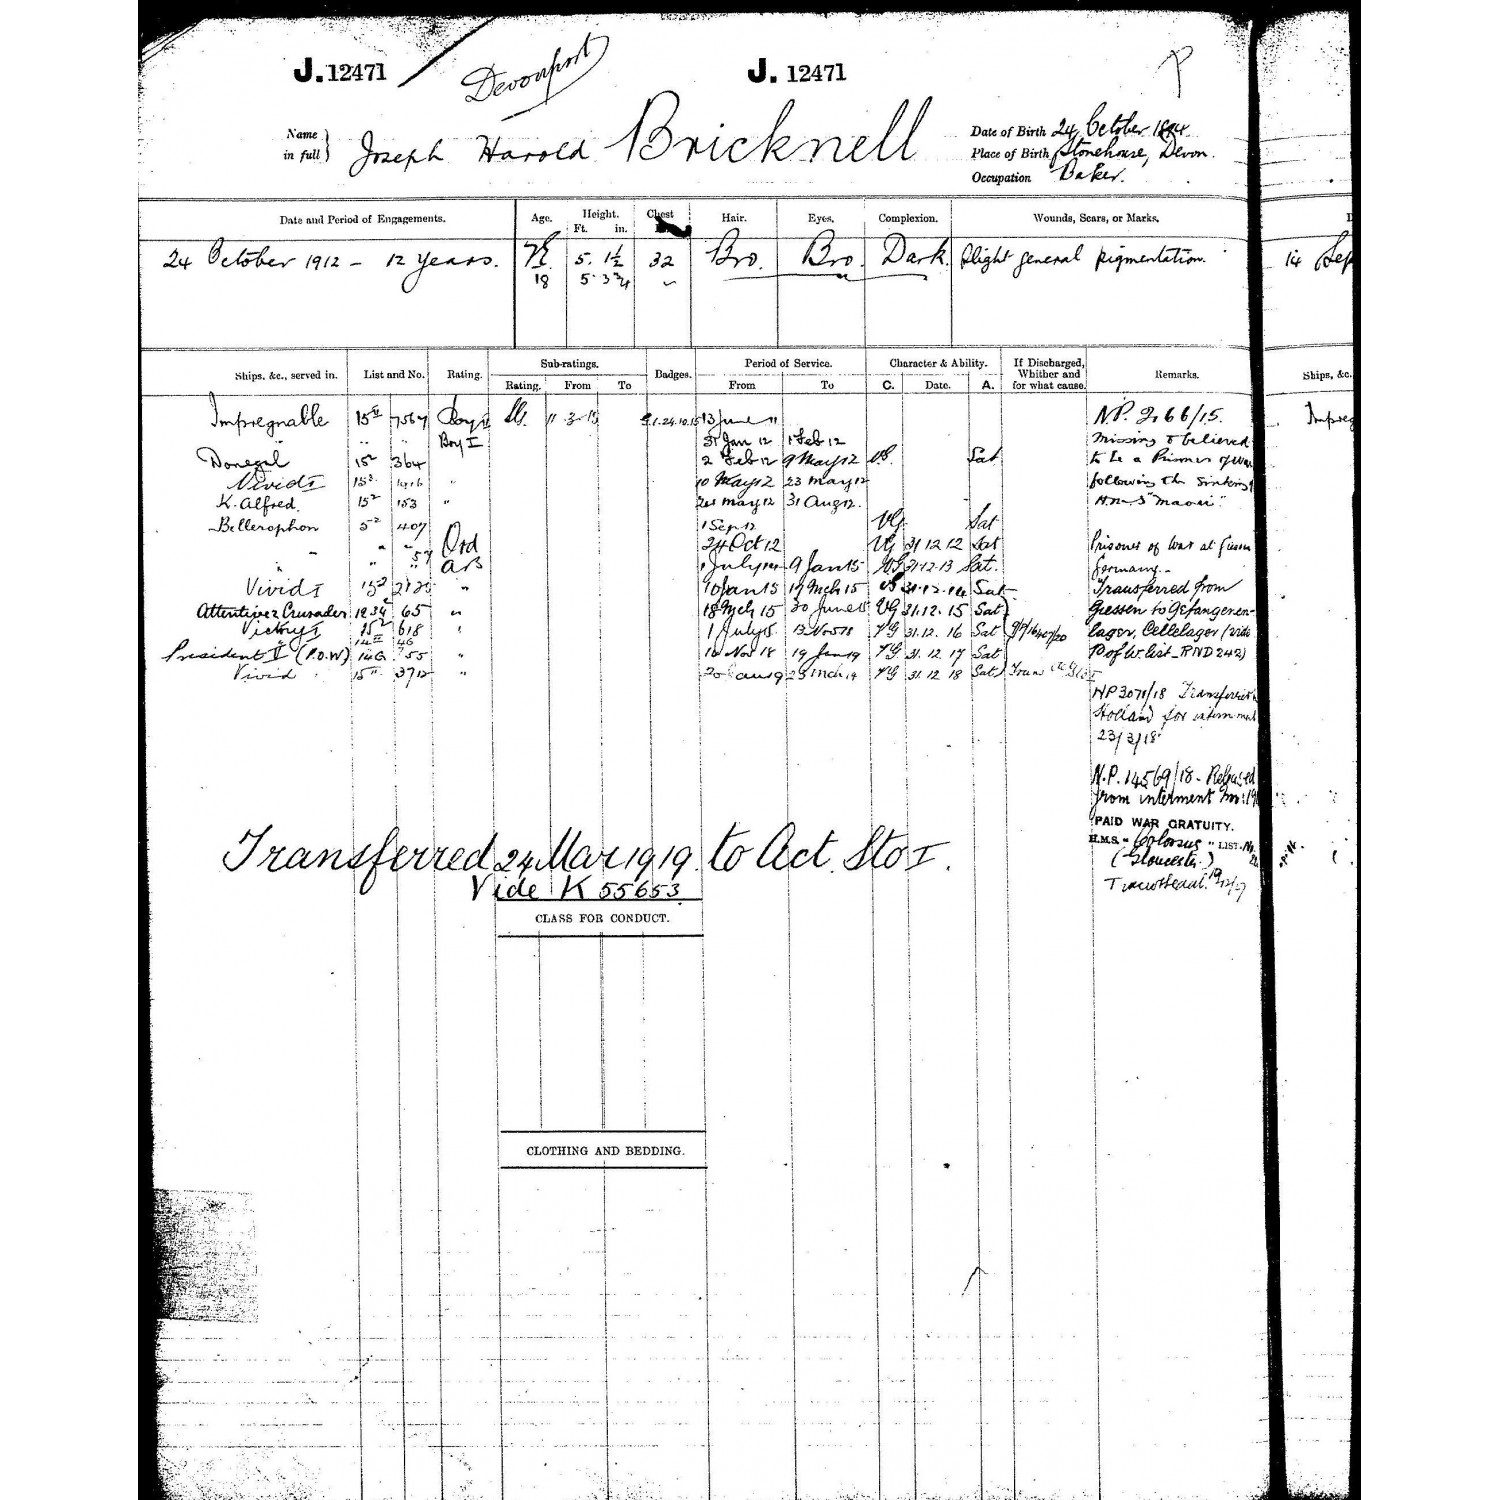 J. 12471
Devonport
J. 12471
Name in full } Joseph Harold Bricknell
Date of Birth 24 October
Place of Birth Stonehouse, Devon.
Occupation Baker.
Date and Period of Engagements. Age. Height. Ft. in. Chest Hair. Eyes. Complexion. Wounds, Scars, or Marks.
24 October 1912 - 12 years. 5. 1½ 32 Bro. Bro. Dark. Slight general pigmentation. 14 Sep
18 5. 3¾
Ships, &c., served in. List and No. Rating. Sub-ratings. Rating. From To Badges. Period of Service. From To Character & Ability. C. Date. A. If Discharged, Whither and for what cause. Remarks. Ships, &c.
Impregnable 15 II 7567 Boy II 11 3 15 1.24.10.15 13 June 11 N.P. 2166/15. Impreg
" " " Boy I 31 Jan 12 1 Feb 12 Missing & believed
Donegal 15² 364 " 2 Feb 12 9 May 12 VG. Sat to be a Prisoner of War
Vivid I 15² 1416 " 10 May 12 23 May 12 following the sinking of
K. Alfred. 15² 153 " 24 May 12 31 Aug 12. H.M.S "Maori".
Bellerophon 5² 407 1 Sep 12 VG. Sat
" " " Ord 24 Oct 12 VG 31 12 12 Sat Prisoner of War at Giessen
" " 57 AB 1 July 14 9 Jan 15 VG 31.12.13 Sat. Germany.-
Vivid I 15² 2125 " 10 Jan 15 17 Mch 15 31.12.14 Sat Transferred from
Attentive 2 Crusader 12 34² 65 " 18 Mch 15 30 June 15 VG 31.12.15 Sat Giessen to Gefangenen-
Victory I 15² 618 " 1 July 15 13 Nov 18 VG 31.12.16 Sat lager, Cellelager (vide
President V (P.O.W) 14G 755 " 14 Nov 18 19 Jan 19 VG 31.12.17 Sat P of W. list - RND 242)
Vivid 15 II 3712 " 20 Jan 19 23 Mch 19 VG 31.12 18 Sat
NP 3071/18 Transferred to
Holland for internment
23/3/18
N.P. 14569/18 - Released
from interment Nov: 19
PAID WAR GRATUITY.
H.M.S. "Colossus" LIST.
(Gloucester.)
Transferred 24 Mar 1919. to Act. Sto I.
Vide K 55653
CLASS FOR CONDUCT.
CLOTHING AND BEDDING.